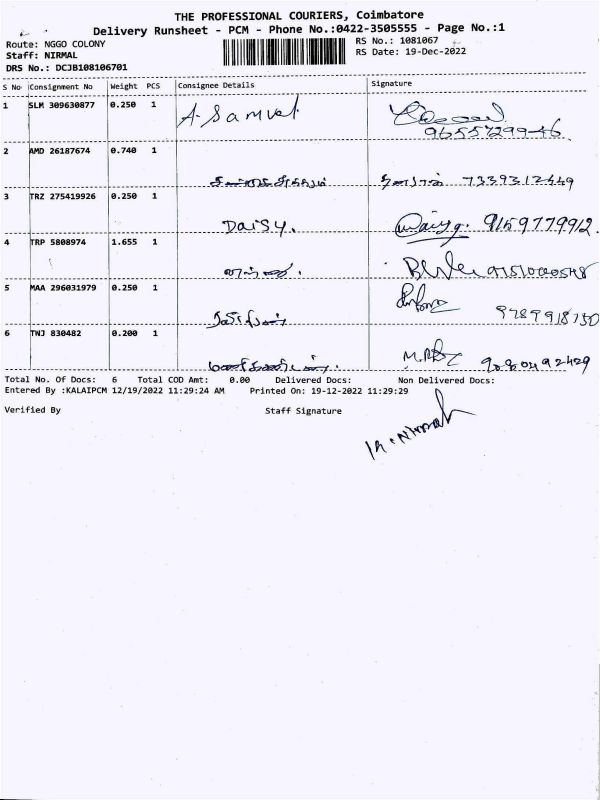 THE PROFESSIONAL COURIERS, Coimbatore
Delivery Runsheet - PCM - Phone No.:0422-3505555 - Page No.:1
Route: NGGO COLONY
RS No.: 1081067
Staff: NIRMAL
RS Date: 19-Dec-2022
DRS No.: DCJB108106701
S No Consignment No Weight PCS Consignee Details Signature
1 SLM 309630877 0.250 1 A. Samuel
2 AMD 26187674 0.740 1 7339312449
3 TRZ 275419926 0.250 1 Daisy. Daisy. 9159779912
4 TRP 5808974 1.655 1
5 MAA 296031979 0.250 1 9789918750
6 TWJ 830482 0.200 1
Total No. Of Docs: 6 Total COD Amt: 0.00 Delivered Docs: Non Delivered Docs:
Entered By :KALAIPCM 12/19/2022 11:29:24 AM Printed On: 19-12-2022 11:29:29
Verified By Staff Signature
Nirmal